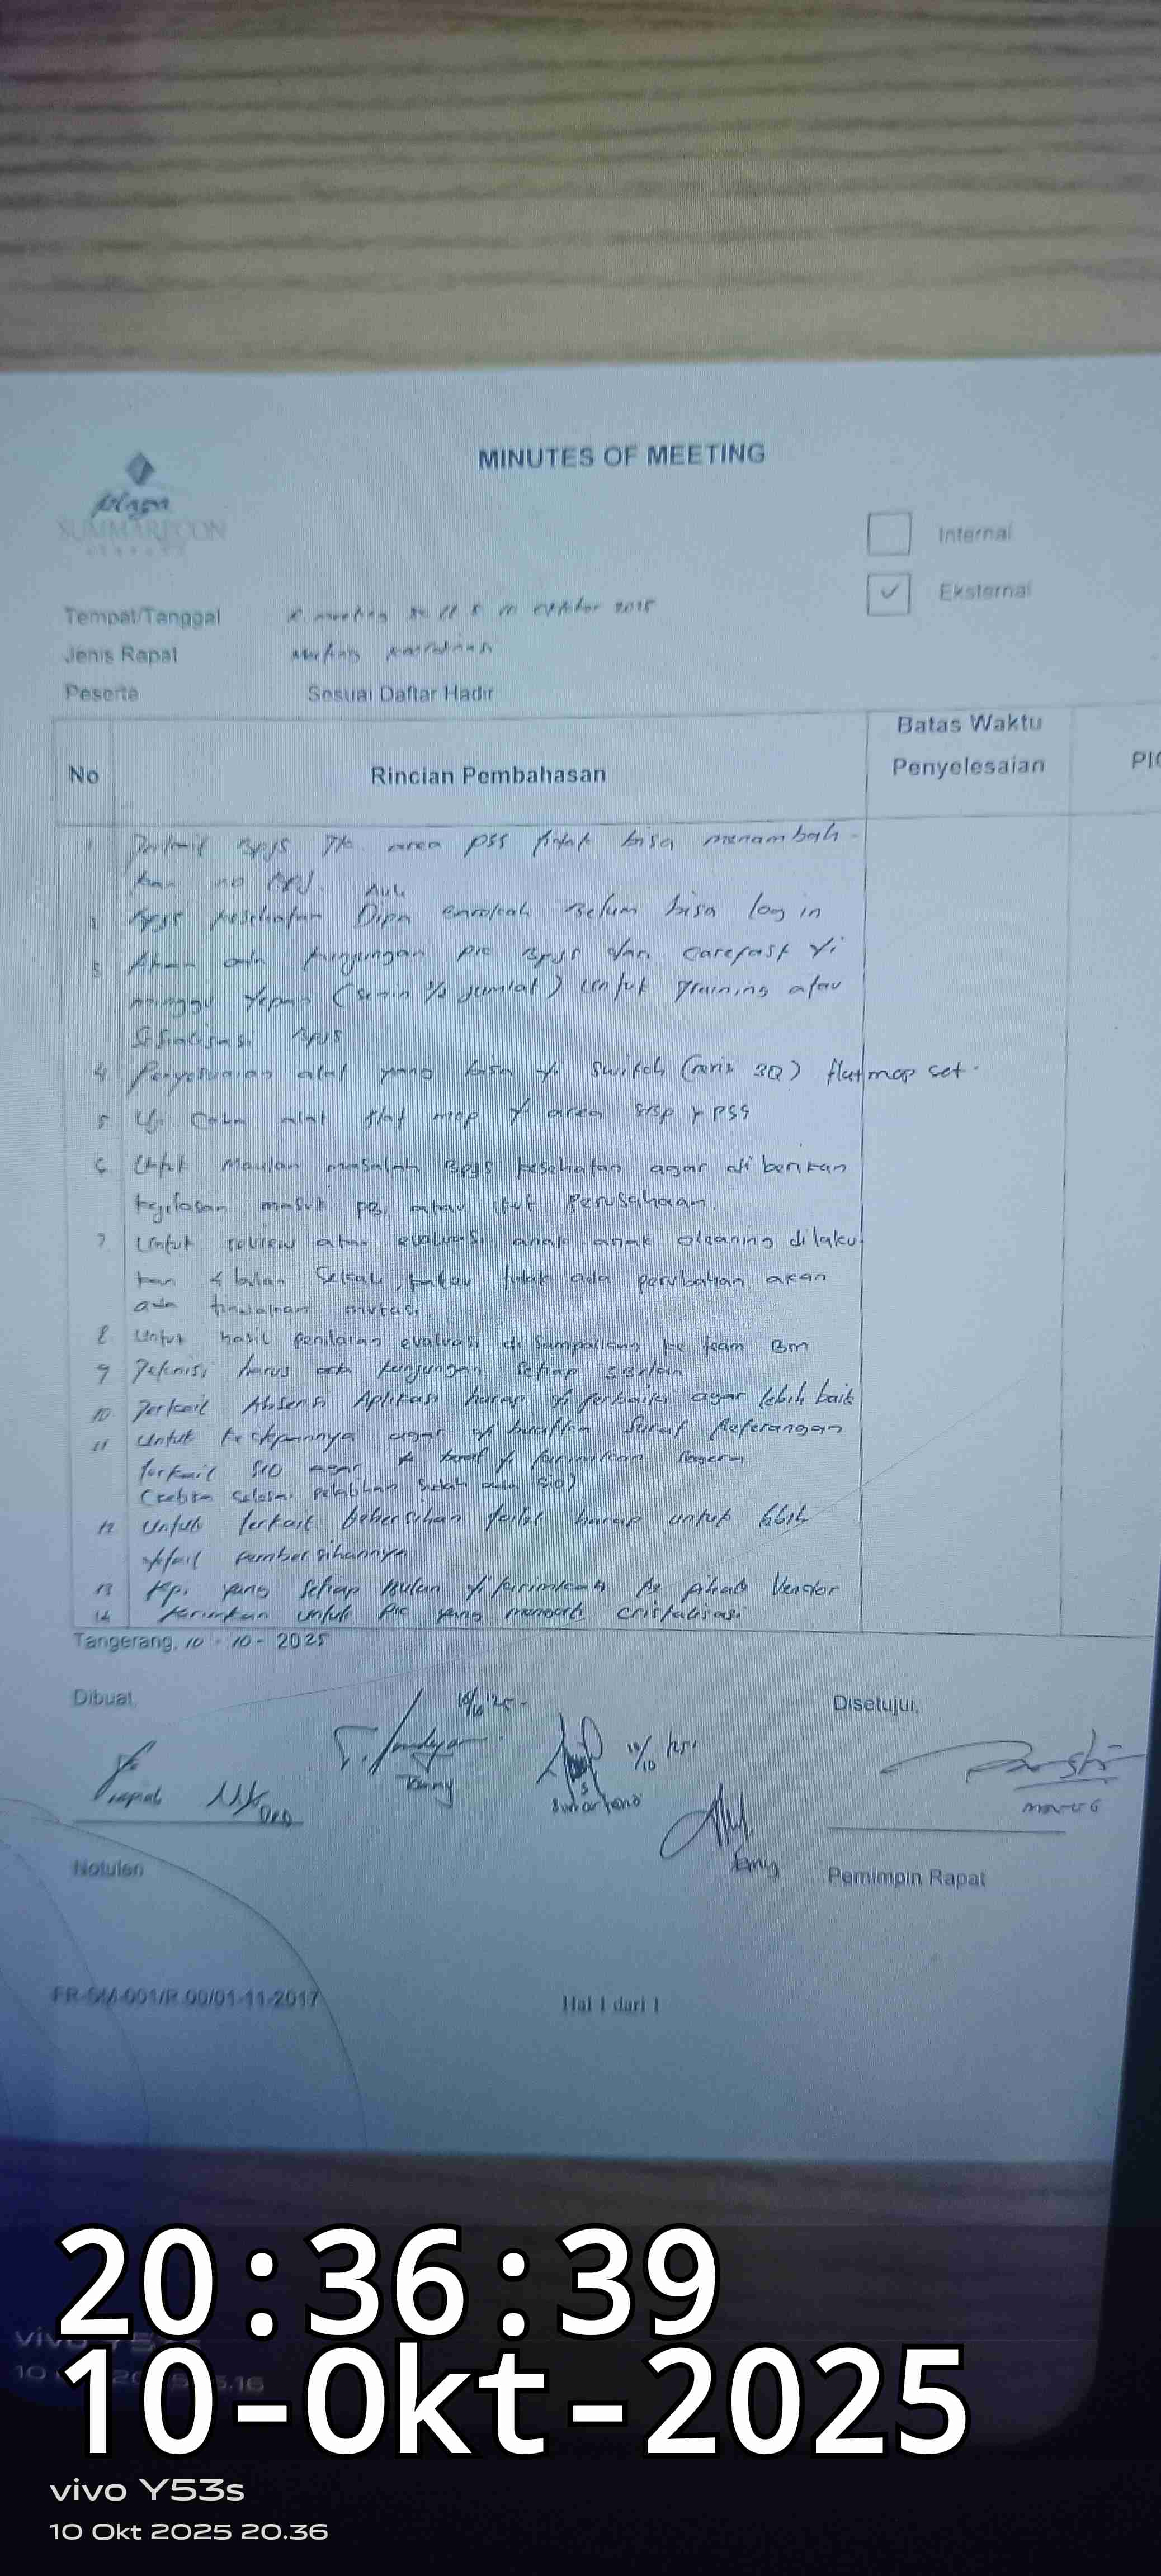 MINUTES OF MEETING
SUMMARECON
Internal
Eksternal
Tempat/Tanggal R meeting 10 Oktober 2025
Jenis Rapat Meeting koordinasi
Peserta Sesuai Daftar Hadir
No Rincian Pembahasan Batas Waktu Penyelesaian PIC
1 Terkait BPJS TK area PSS tidak bisa menambah-
kan no
2 BPJS kesehatan Dipa Barokah Belum bisa log in
3 Akan ada kunjungan pic BPJS dan Carefast di
minggu depan (senin s/d jumlat) untuk Training atau
Sosialisasi BPJS
4. Penyesuaian alat yang bisa di switch flatmop set.
5 Uji Coba alat flat mop di area PSS
6 Untuk Maulan masalah BPJS kesehatan agar di berikan
kejelasan masuk PBI atau ikut Perusahaan.
7 Untuk review atau evaluasi anak-anak cleaning dilaku
kan 4 bulan Sekali, kalau tidak ada perubahan akan
ada tindakan mutasi.
8 Untuk hasil penilaian evaluasi di Sampaikan ke team BM
9 Teknisi harus ada kunjungan setiap 3 Bulan
10 Terkait Absensi Aplikasi harap di perbaiki agar lebih baik
11 Untuk kedepannya agar di buatkan Surat Keterangan
terkait SIO agar di kirimkan segera
selesai pelatihan sudah ada SIO)
12 Untuk terkait kebersihan toilet harap untuk lebih
detail pembersihannya
13 Kpi yang setiap Bulan di kirimkan ke pihak Vendor
14 kirimkan untuk Pic yang kristalisasi
Tangerang, 10 - 10 - 2025
Dibuat, Disetujui,
10/10'25-
Tammy
10/10
Suhartono
Notulen
Pemimpin Rapat
FR-GM-001/R.00/01-11-2017 Hal 1 dari 1
20:36:39
10-Okt-2025
vivo Y53s
10 Okt 2025 20.36